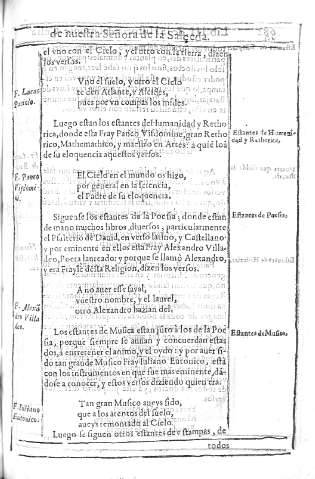 de nuestra Señora de la Salceda.
el vno con el Cielo, y el otro con la tierra, dizen
los versas.
Vno el suelo, y otro el Cielo
te den Atlante, y Alcides,
pues por vn compas los mides.
F. Lucas
Luego estan los estantes del Humanidad y Retho
rica, donde esta Fray Panfo Visdomine, gran Retho
rico, Mathemathico, y maestro en Artes: a quié loá
de su eloquencia aquestos versos.
Estantes de Humani-
dad y Retborica.
El Cielo en el mundo os hizo,
por general en la sciencia,
el Padre de su eloquencia.
F. Panfo
Visdomi-
Siguense los estantes de la Poesia, donde estan
de mano muchos libros diuersos, particularmente
el Psalterio de Dauid, en verso latino, y Castellano
y por eminente en ellos esta Fray Alexandro Villa-
dco, Poeta laureado: y porque se llamò Alexandro,
y era Frayle desta Religion, dizen los versos.
Estantes de Poesia.
A no auer esse sayal,
vuestro nombre, y el laurel,
otro Alexandro hazian del.
F. Alexā
en Villa
deo.
Los estantes de Musica estan jũto à los de la Poe
sia, porque siempre se aunan y concuerdan estas
dos, à entretener el animo, y el oydo: y por auer si-
do tan grande Musico Fray Iuliano Eutonico, està
con los instrumentos en que fue mas eminente, dá-
dose a conocer, y estos versos diziendo quien era.
Estantes de Musica.
Tan gran Musico aueys sido,
que a los acentos del suelo,
aueys remontado al Cielo.
F. Iuliano
Eutonico.
Luego se siguen otros estantes de estampas, de
todos